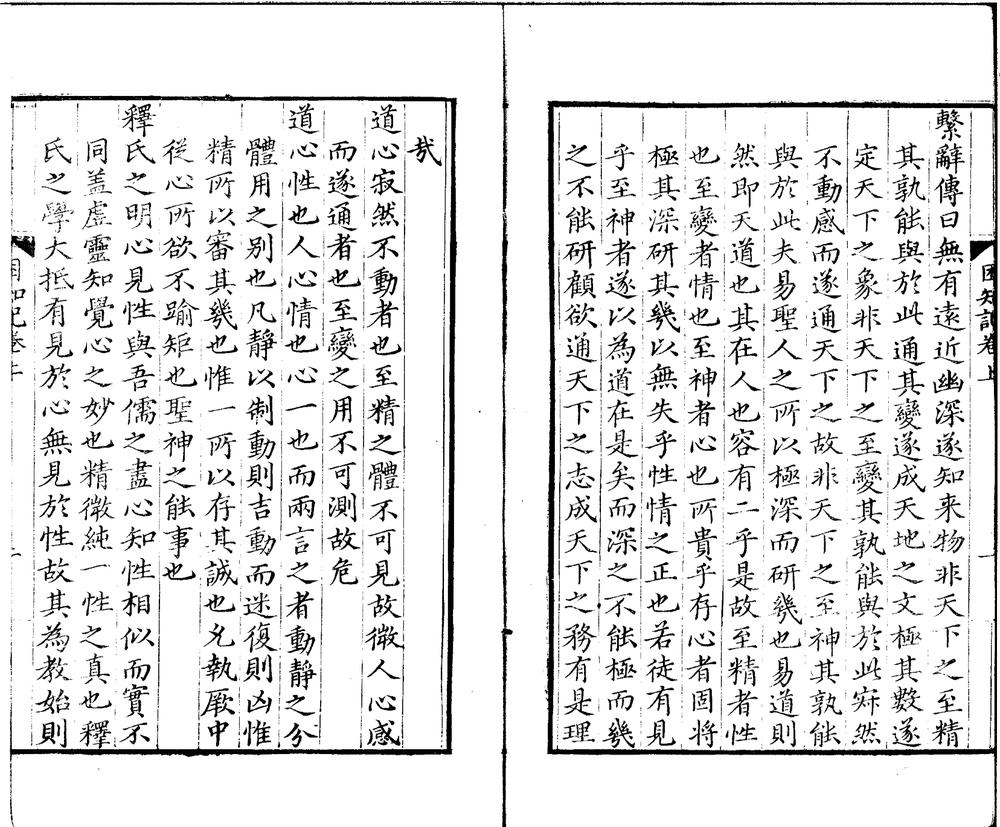 繫辭傳曰無有遠近幽深遂知来物非天下之至精
其孰能與於此通其變遂成天地之文極其數遂
定天下之象非天下之至變其孰能與於此寂然
不動感而遂通天下之故非天下之至神其孰能
與於此夫易聖人之所以極深而研幾也易道則
然即天道也其在人也容有二乎是故至精者性
也至變者情也至神者心也所貴乎存心者固將
極其深研其幾以無失乎性情之正也若徒有見
乎至神者遂以為道在是矣而深之不能極而幾
之不能研顧欲通天下之志成天下之務有是理
困知記卷上
哉
道心寂然不動者也至精之體不可見故微人心感
而遂通者也至變之用不可測故危
道心性也人心情也心一也而兩言之者動靜之分
體用之別也凡靜以制動則吉動而迷復則凶惟
精所以審其幾也惟一所以存其誠也允執厥中
從心所欲不踰矩也聖神之能事也
釋氏之明心見性與吾儒之盡心知性相似而實不
同盖虛靈知覺心之妙也精微純一性之真也釋
氏之學大抵有見於心無見於性故其為教始則
困知記卷上